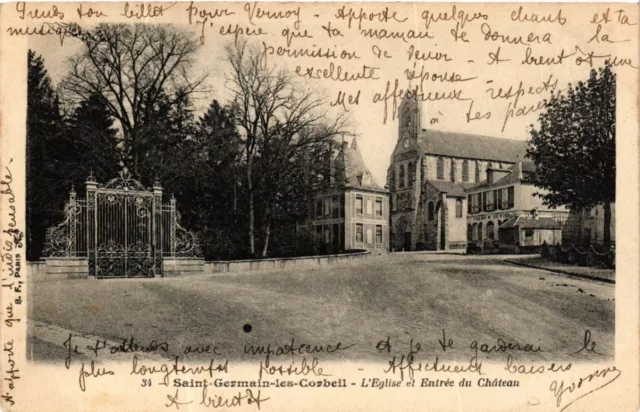 Prends ton billet pour Vernoy - Apporte quelques chant et ta
musique.
J'espère que ta maman te donnera la
permission de venir. - A bientôt une
excellente réponse
Mets affectueux respects
à tes parents
Je t'attends avec impatience et je te garderai le
plus longtemps possible - Affectueux baisers
A bientôt
Yvonne
Apporte que d'indispensable.
B. F., PARIS
34 Saint-Germain-les-Corbeil - L'Eglise et Entrée du Château